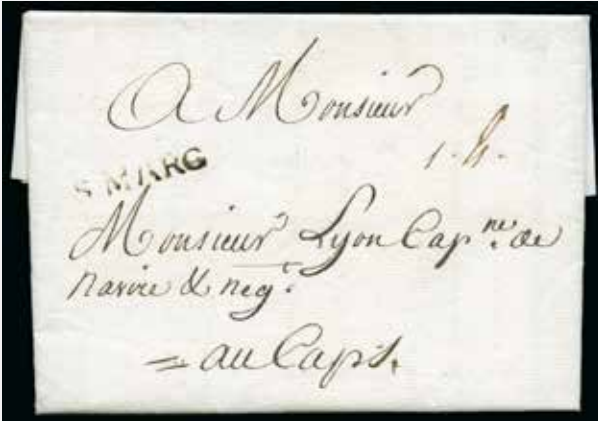 A Monsieur
S MARC
Monsieur Lyon Cap.ne de
navire & neg.t
au Cap